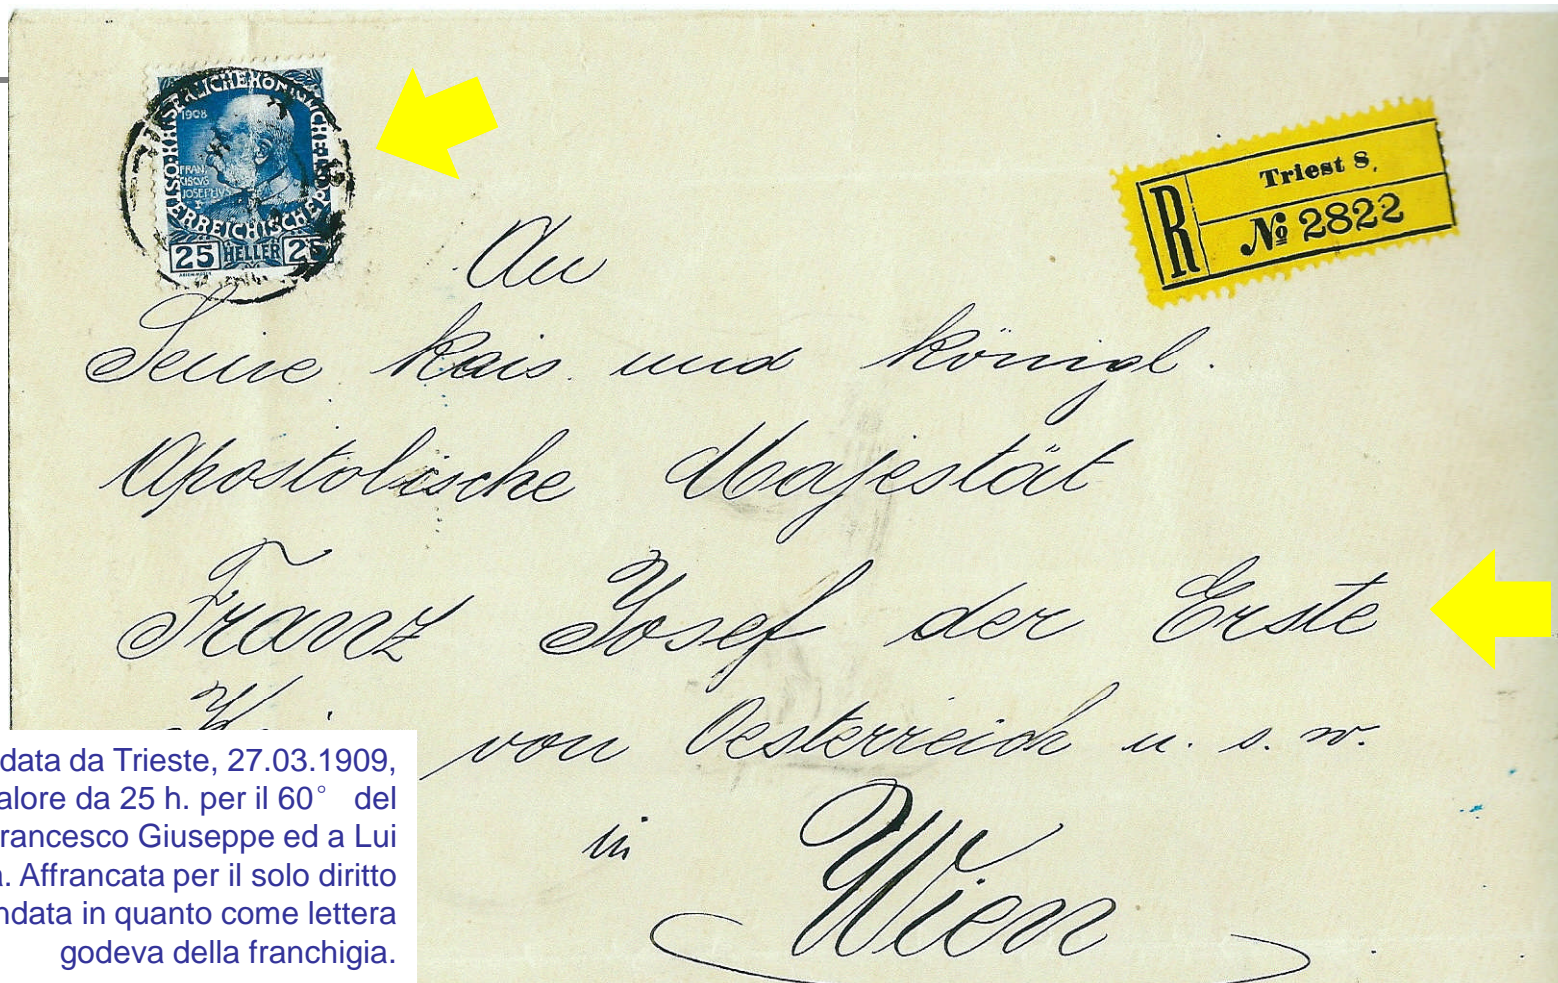 KAISERLICHE KÖNIGLICHE ÖSTERREICHISCHE POST
1908
FRAN
CISCVS
JOSEPHVS
I
25 HELLER 25
R
Triest 8.
№ 2822
An
Seine kais. und königl.
Apostolische Majestät
Franz Josef der Erste
von Oesterreich u. s. w.
in Wien
data da Trieste, 27.03.1909,
alore da 25 h. per il 60° del
rancesco Giuseppe ed a Lui
a. Affrancata per il solo diritto
ndata in quanto come lettera
godeva della franchigia.